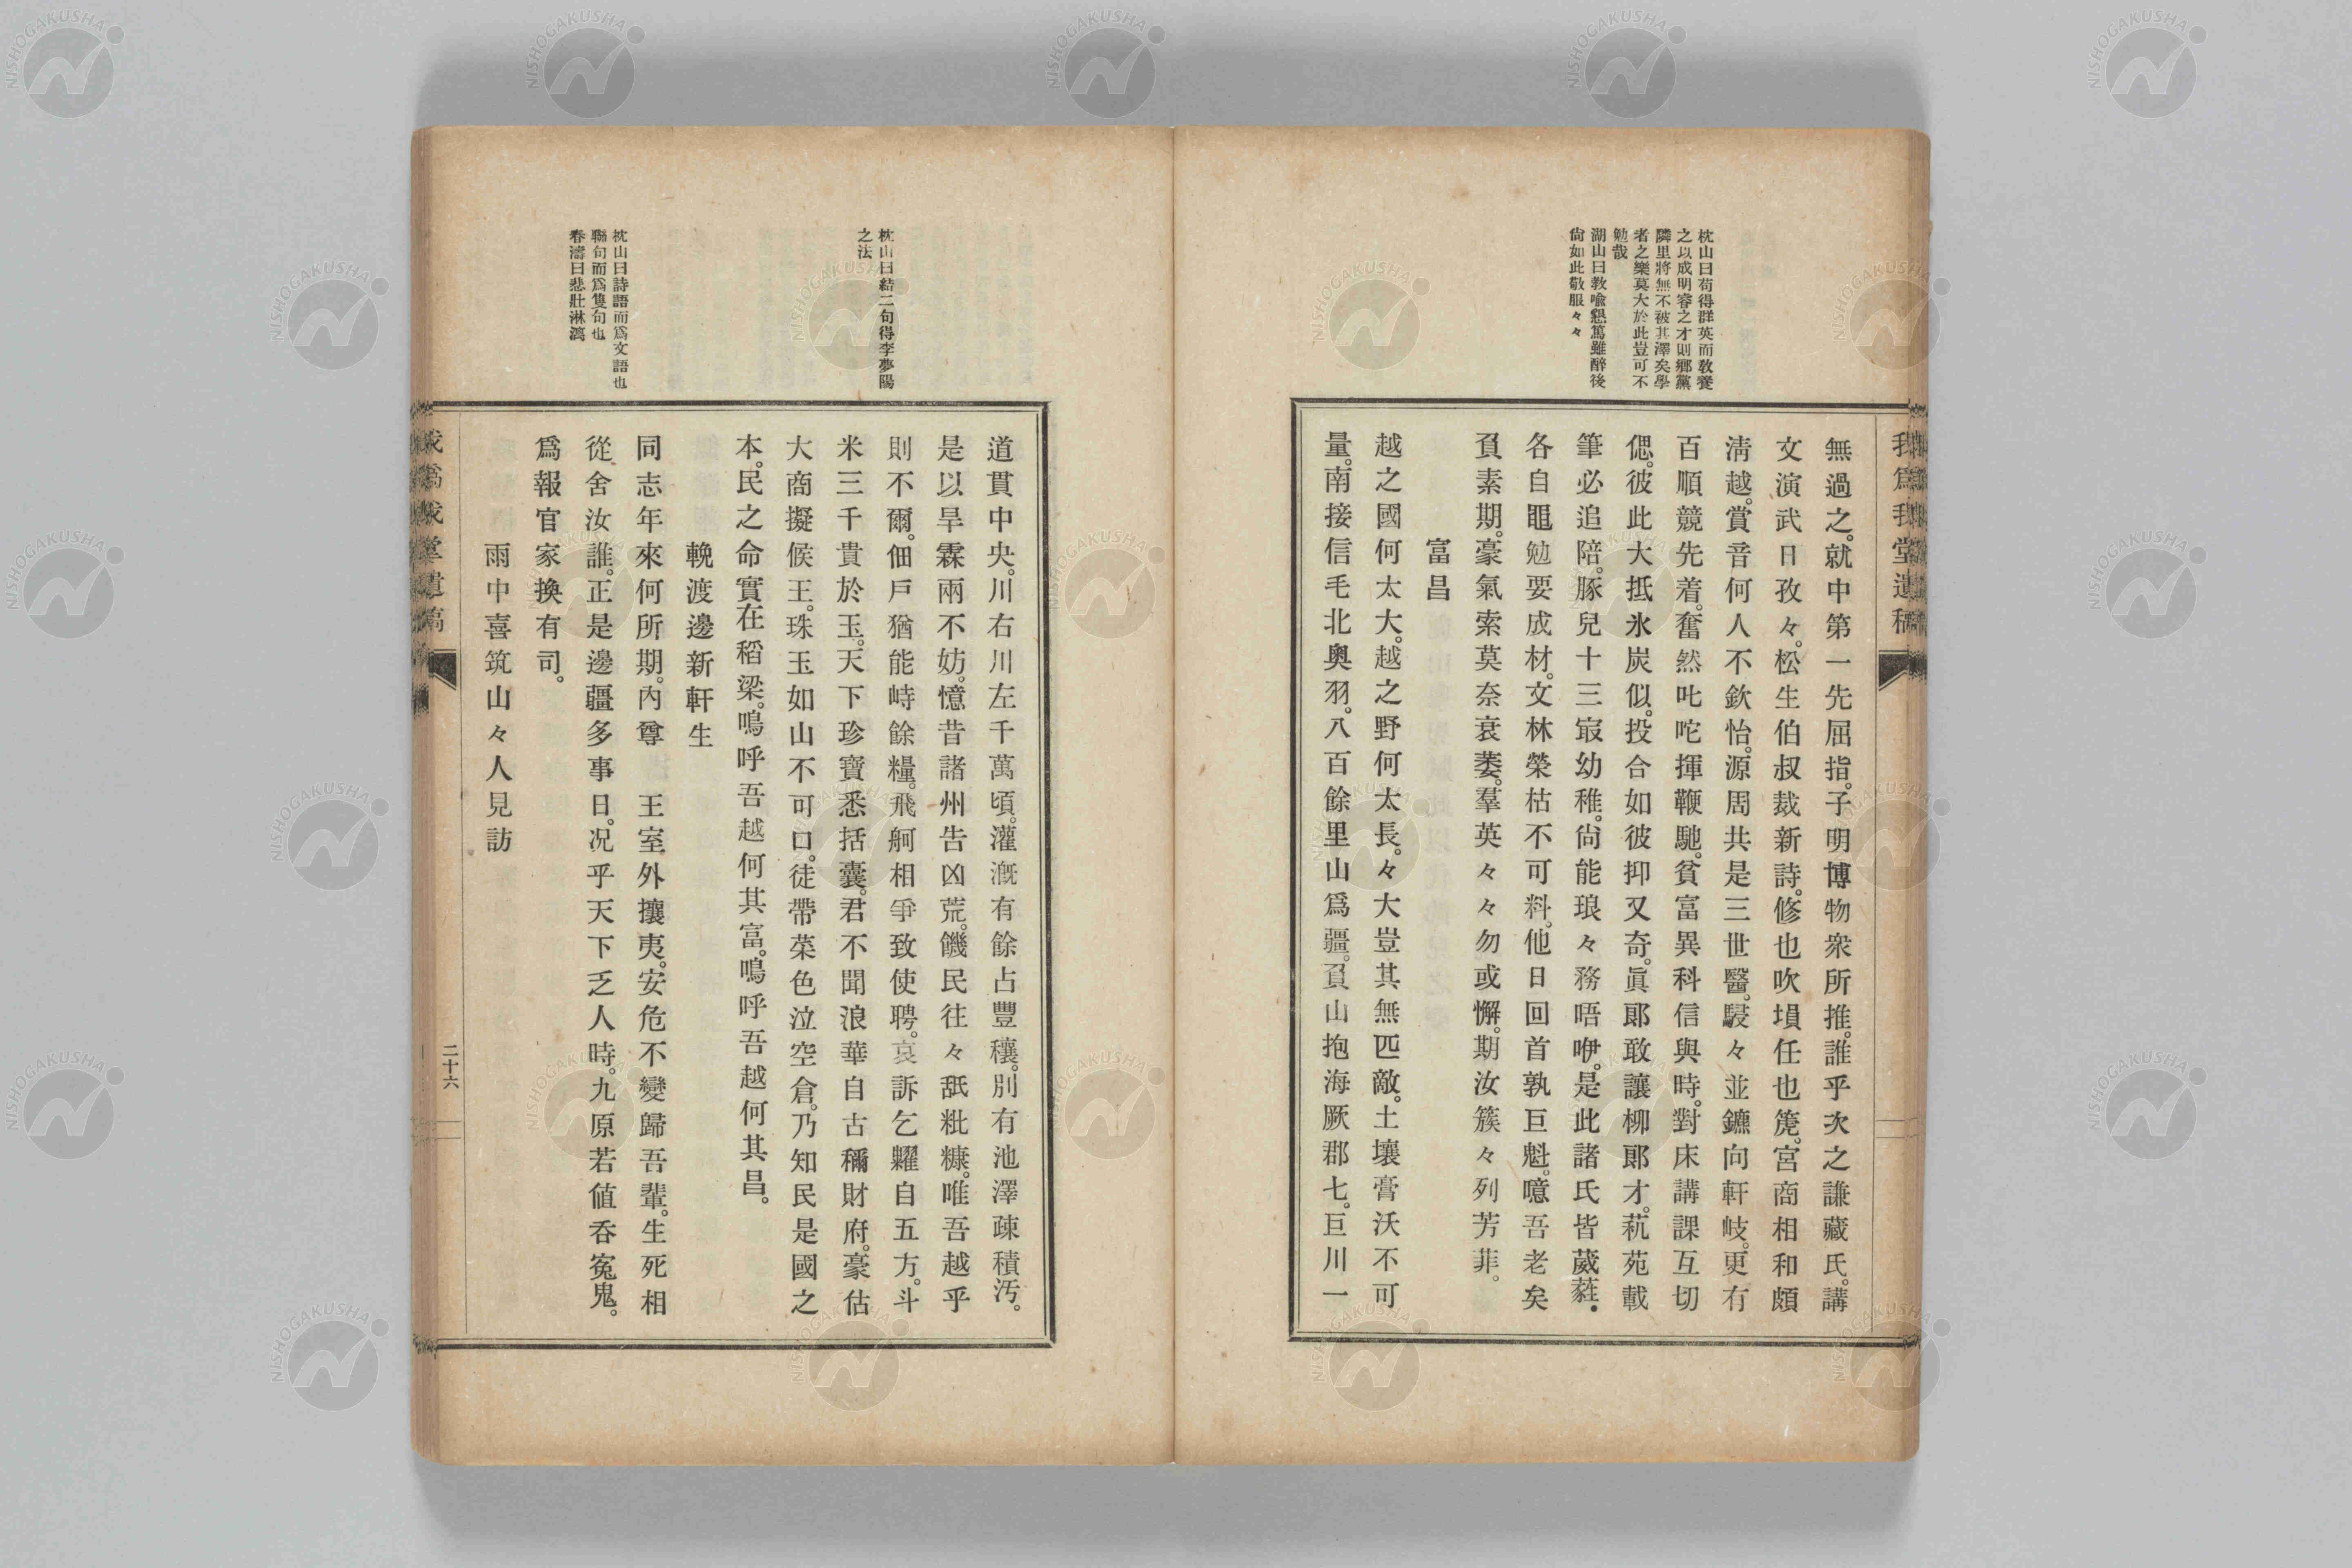 枕山曰苟得群英而教養
之以成明睿之才則鄉黨
隣里將無不被其澤矣學
者之樂莫大於此豈可不
勉哉
湖山曰教喩懇篤雖醉後
尙如此敬服々々
我爲我堂遺稿
無過之。就中第一先屈指。子明博物衆所推。誰乎次之謙藏氏。講
文演武日孜々。松生伯叔裁新詩。修也吹塤任也箎。宮商相和頗
淸越。賞音何人不欽怡。源周共是三世醫。駸々並鑣向軒岐。更有
百順競先着。奮然叱咤揮鞭馳。貧富異科信與時。對床講課互切
偲。彼此大抵氷炭似。投合如彼抑又奇。眞郞敢讓柳郞才。萟苑載
筆必追陪。豚兒十三㝡幼稚。尙能琅々務唔咿。是此諸氏皆葳蕤・
各自黽勉要成材。文林榮枯不可料。他日回首孰巨魁。噫吾老矣
負素期。豪氣索莫奈衰萎。羣英々々勿或懈。期汝簇々列芳菲。
富昌
越之國何太大。越之野何太長。々大豈其無匹敵。土壤膏沃不可
量。南接信毛北奧羽。八百餘里山爲疆。負山抱海厥郡七。巨川一
枕山曰結二句得李夢陽
之法
枕山曰詩語而爲文語也
聯句而爲隻句也
春濤曰悲壯淋漓
道貫中央。川右川左千萬頃。灌漑有餘占豐穰。別有池澤疎積汚。
是以旱霖兩不妨。憶昔諸州吿凶荒。饑民往々舐粃糠。唯吾越乎
則不爾。佃戶猶能峙餘糧。飛舸相爭致使聘。哀訴乞糶自五方。斗
米三千貴於玉。天下珍寶悉括囊。君不聞浪華自古稱財府。豪估
大商擬候王。珠玉如山不可口。徒帶菜色泣空倉。乃知民是國之
本。民之命實在稻梁。嗚呼吾越何其富。嗚呼吾越何其昌。
輓渡邊新軒生
同志年來何所期。內尊　王室外攘夷。安危不變歸吾輩。生死相
從舍汝誰。正是邊疆多事日。况乎天下乏人時。九原若値呑寃鬼。
爲報官家換有司。
雨中喜筑山々人見訪
我爲我堂遺稿
二十六